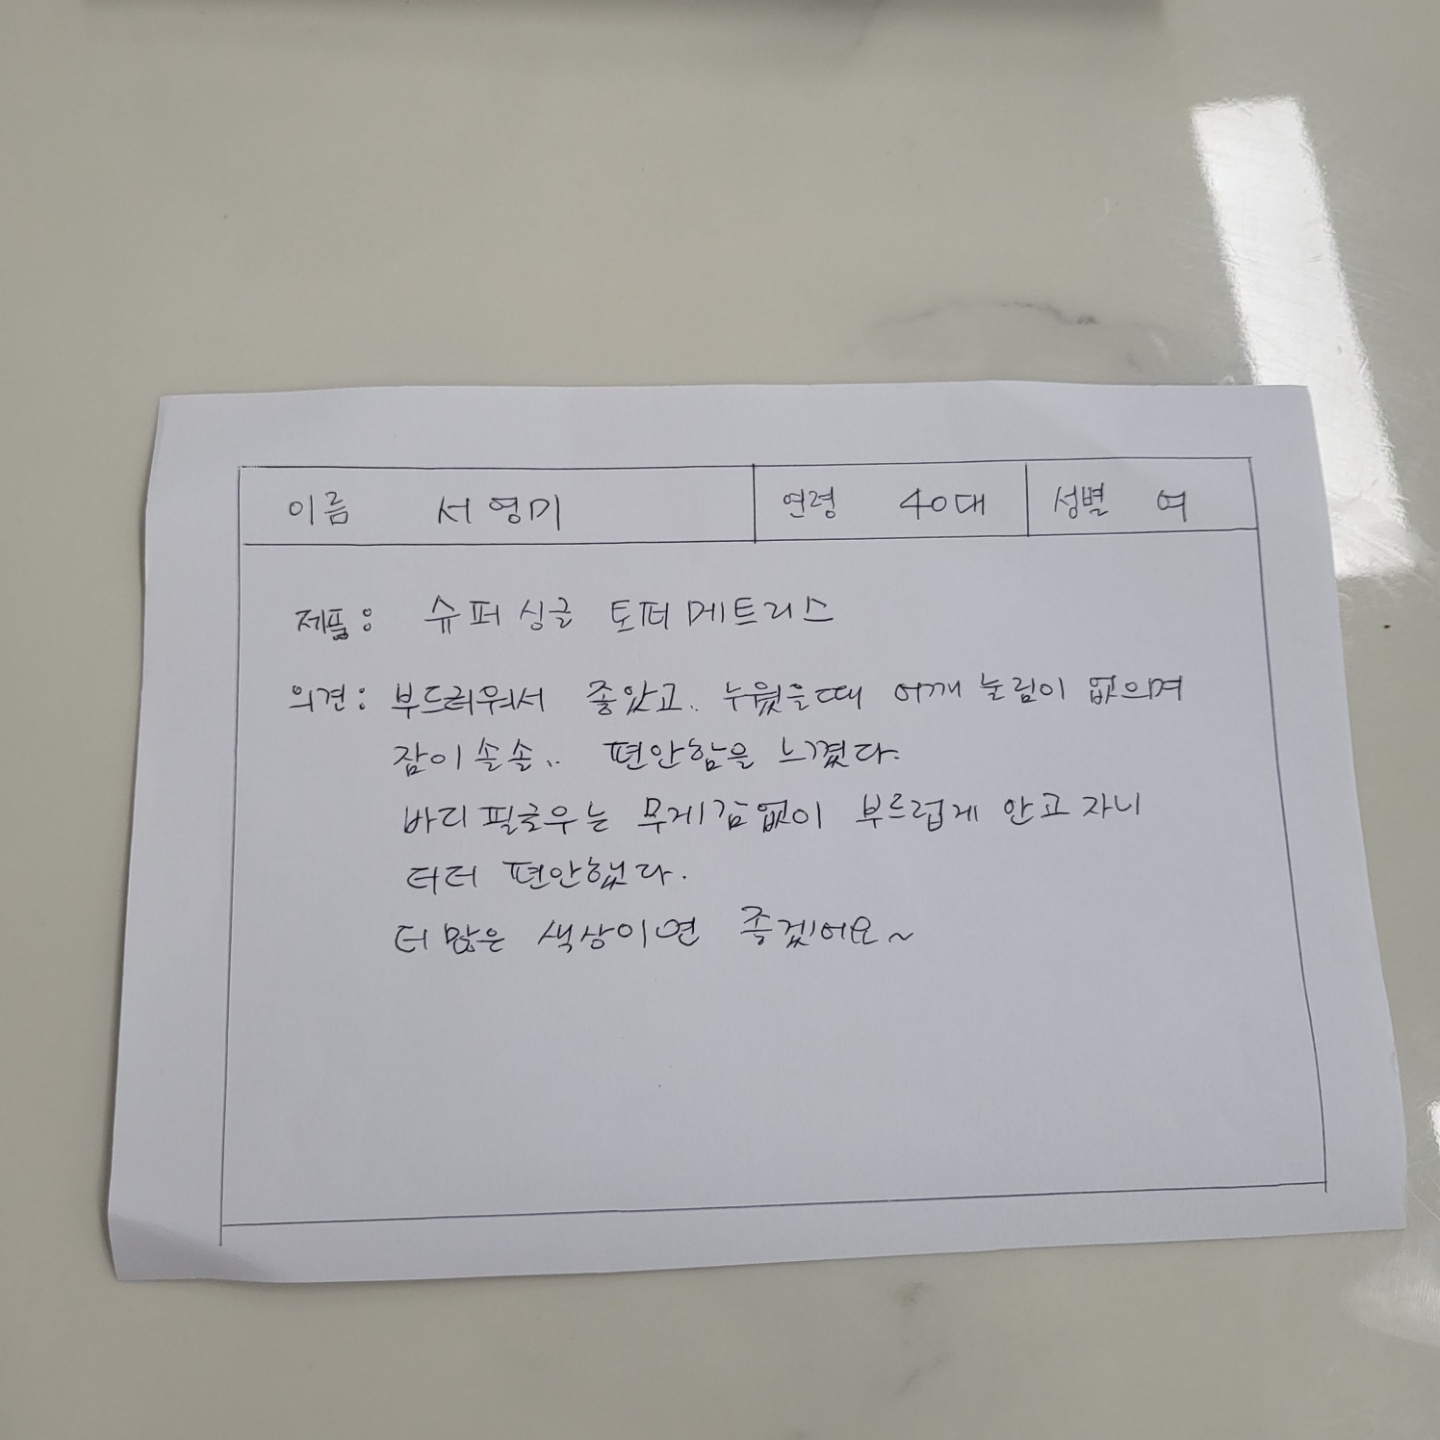 이름 서영미 연령 40대 성별 여
제품: 슈퍼싱글 토퍼메트리스
의견: 부드러워서 좋았고.. 누웠을때 어깨 눌림이 없으며
잠이 솔솔.. 편안함을 느꼈다.
바디필로우는 무게감없이 부드럽게 안고자니
더더 편안했다.
더 많은 색상이면 좋겠어요~